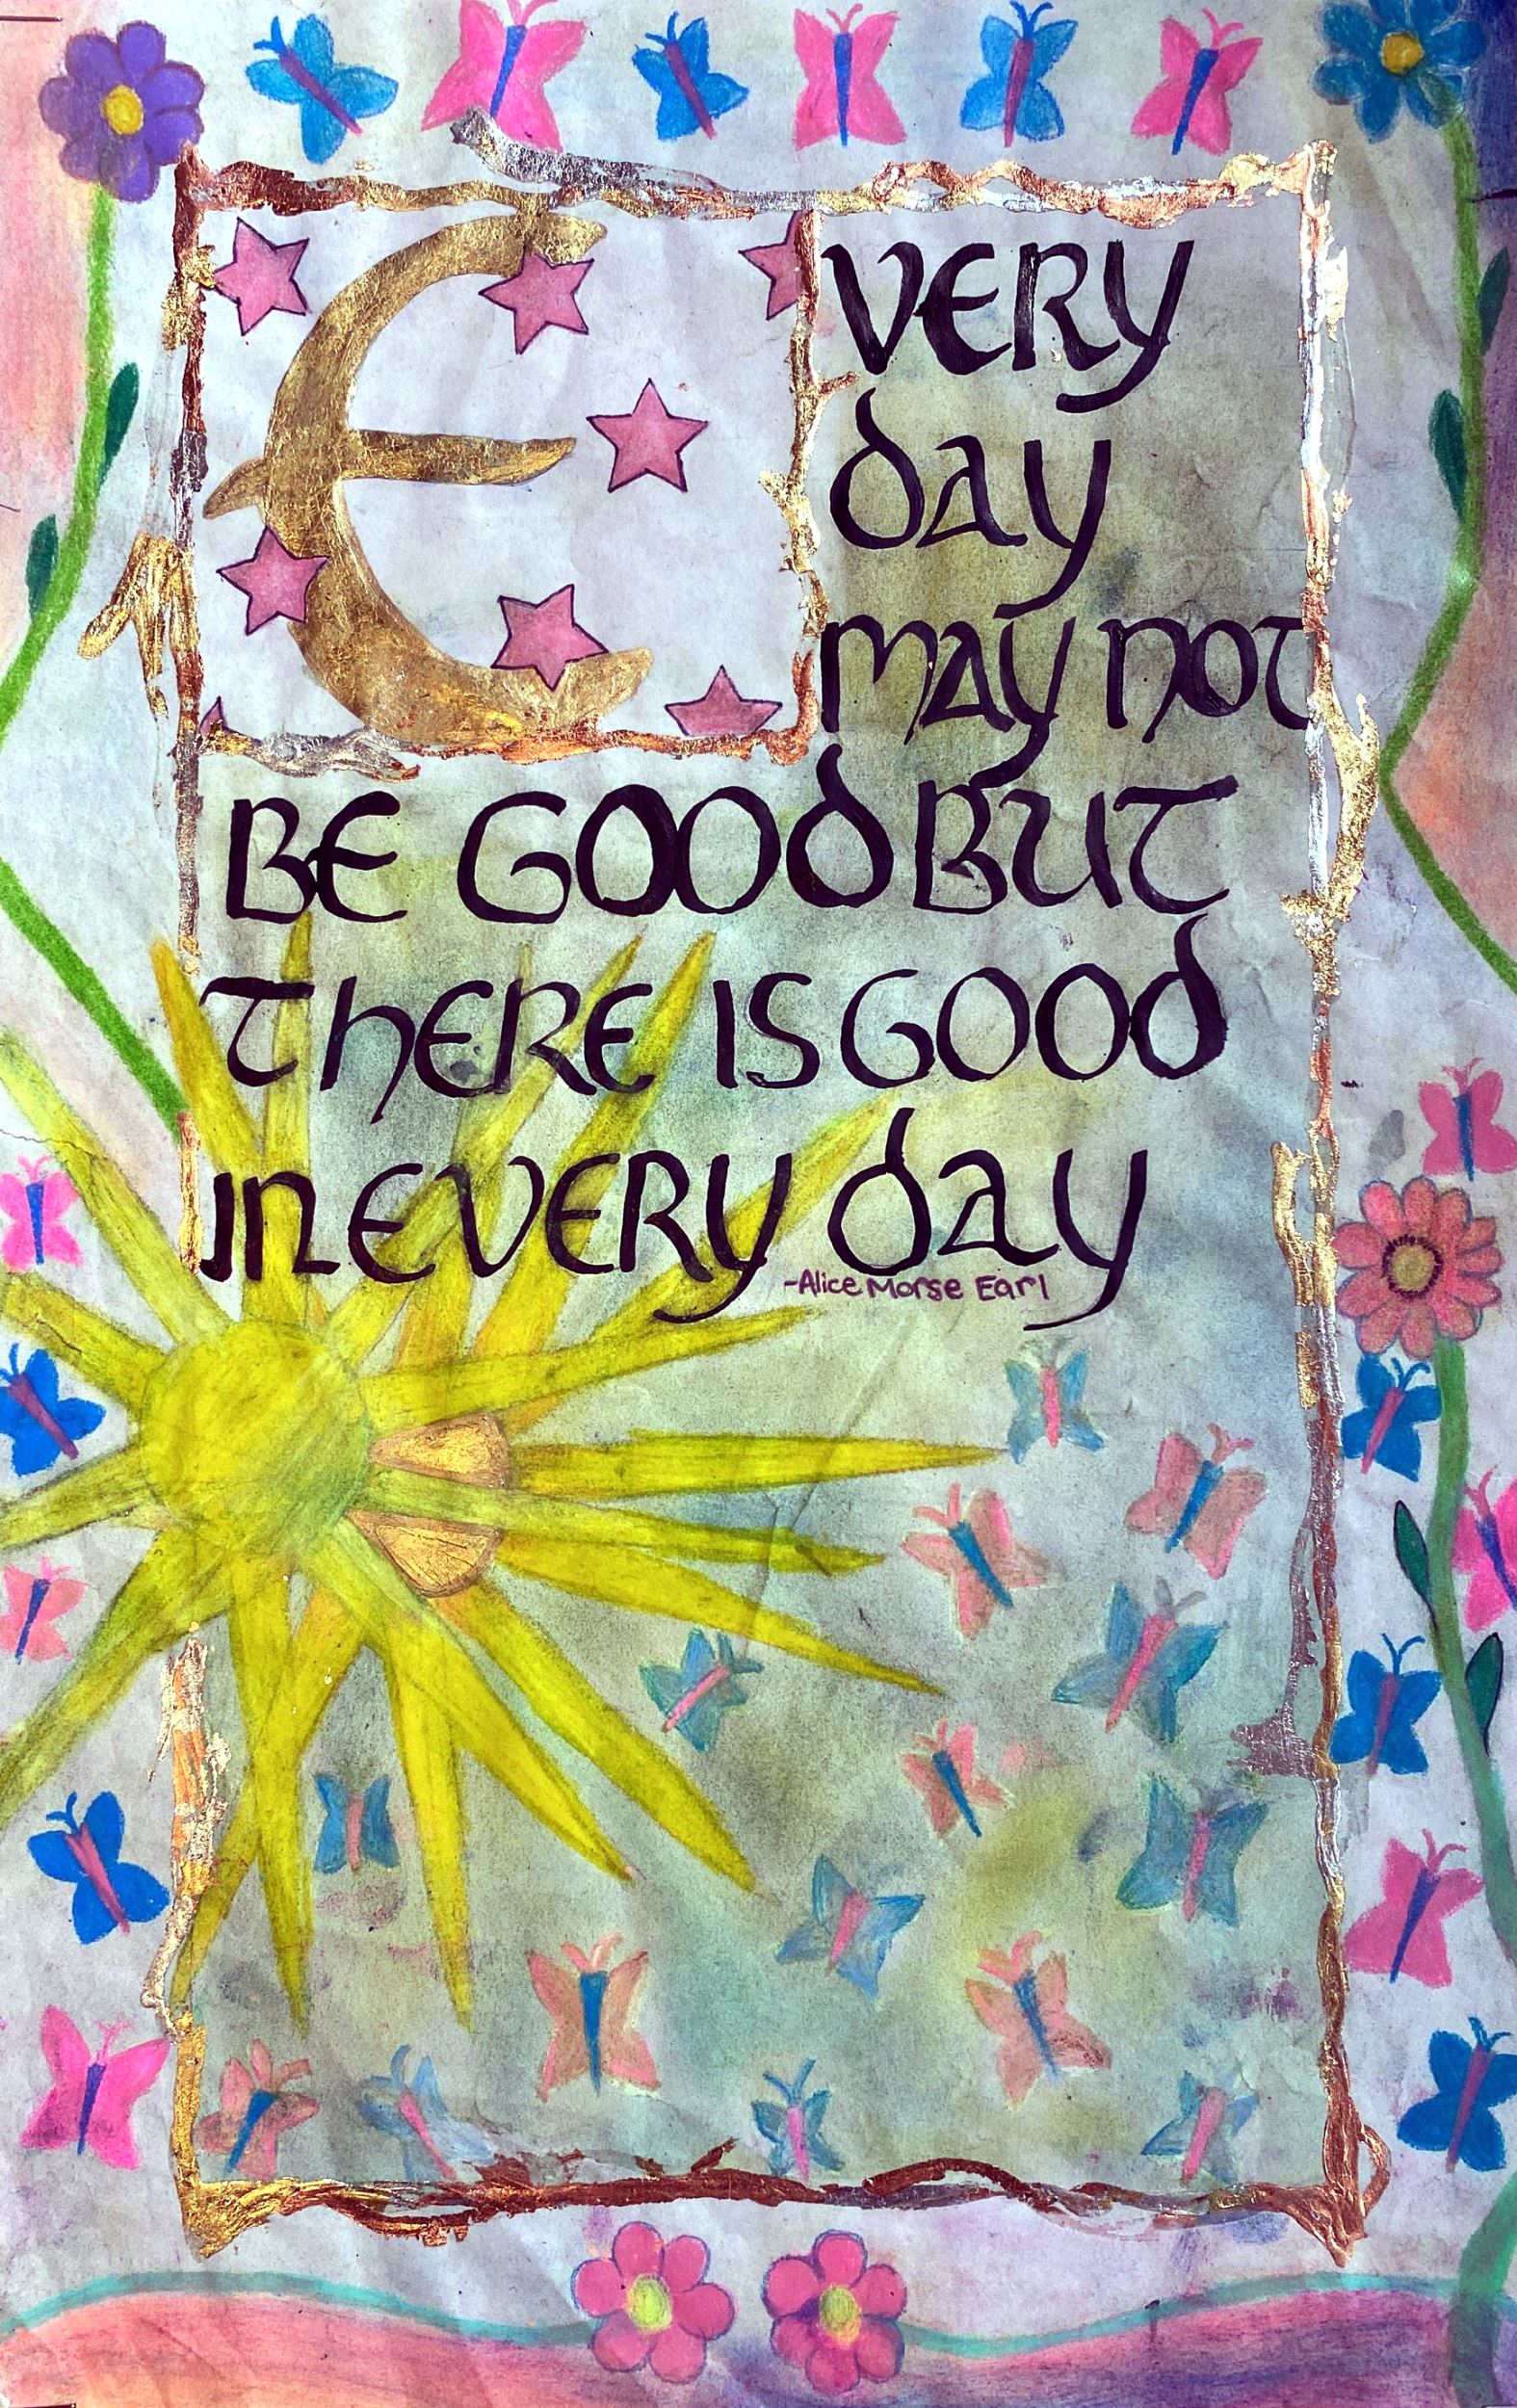 EVERY
day
MAY NOT
BE GOOD BUT
THERE IS GOOD
IN EVERY day
-Alice Morse Earl